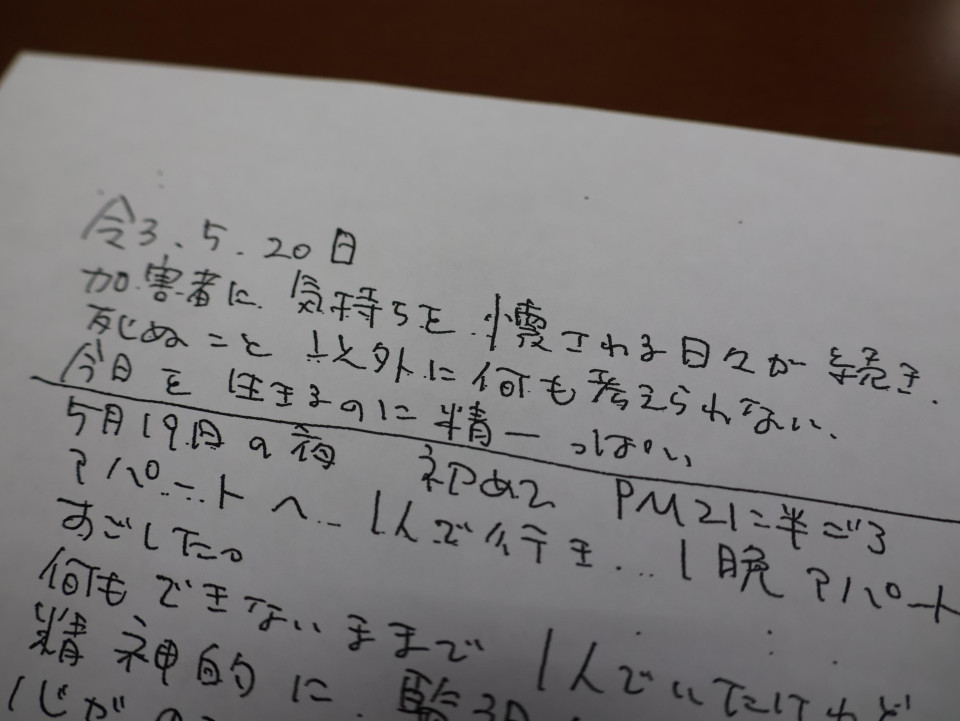 令3.5.20日
加害者に.気持ちを.壊される日々が続き.
死ぬこと以外に何も考えられない.
今日を生きるのに精一っぱい、
5月19日の夜 初めて PM21時半ごろ
アパートへ…1人で行き…1晩アパート
すごしてた。
何もできないままで 1人でいてたけれど
精神的に